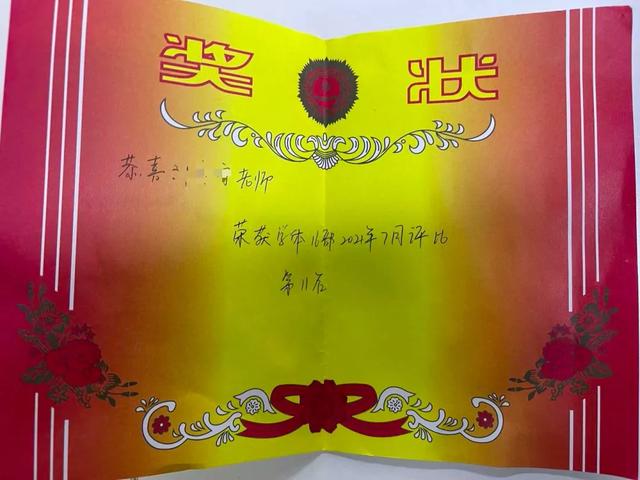 奖状
恭喜 老师
荣获 2021年7月评比
第11名